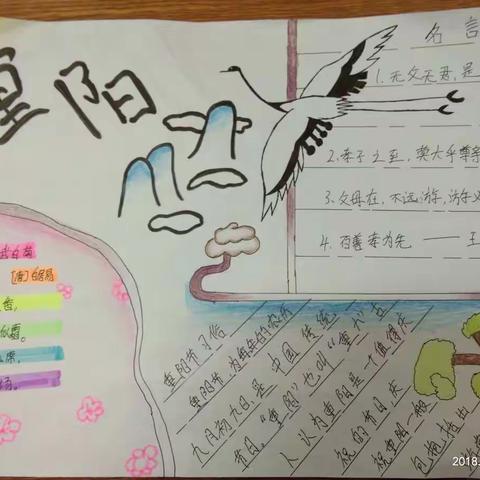 重阳
名言
1. 无父无君,是
2. 孝子之至,莫大乎尊亲
3. 父母在,不远游,游必
4. 百善孝为先 —— 王
白菊
[唐]白居易
霜。
重阳节习俗
重阳节,为每年的农历
九月初九日是中国传统
节日。"重阳"也叫"重九"
人认为重阳是一个值得庆
祝的节日庆
祝重阳一般
包抱括出
2018.